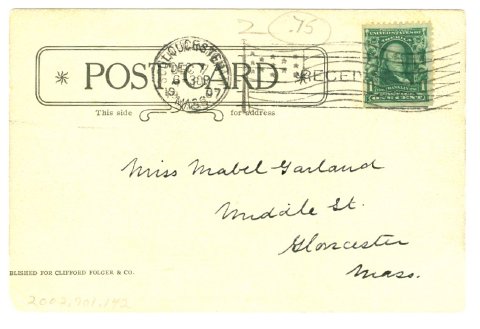 .75
GLOUCESTER
DEC 7
6 30 P
07
MASS.
RECE
UNITED STATES OF AMERICA
1 1
ONE CENT
* POST CARD *
This side for address
Miss Mabel Garland
Middle St.
Gloucester
Mass.
BLISHED FOR CLIFFORD FOLGER & CO.
2002.901.142